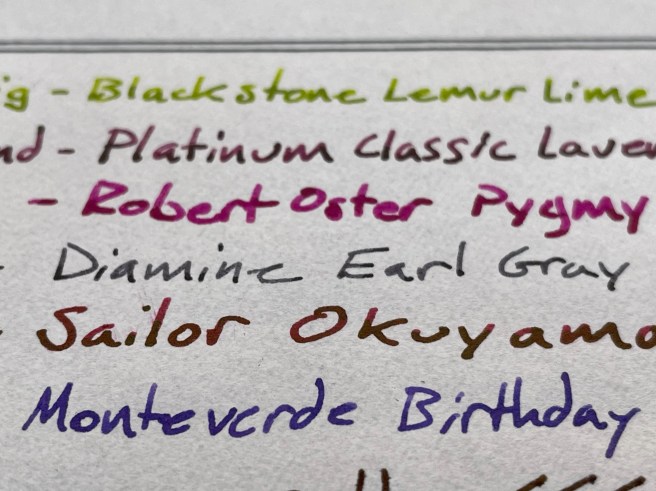 ig - Blackstone Lemur Lime
nd - Platinum Classic Laven
- Robert Oster Pygmy
- Diamine Earl Gray
- Sailor Okuyama
Monteverde Birthday